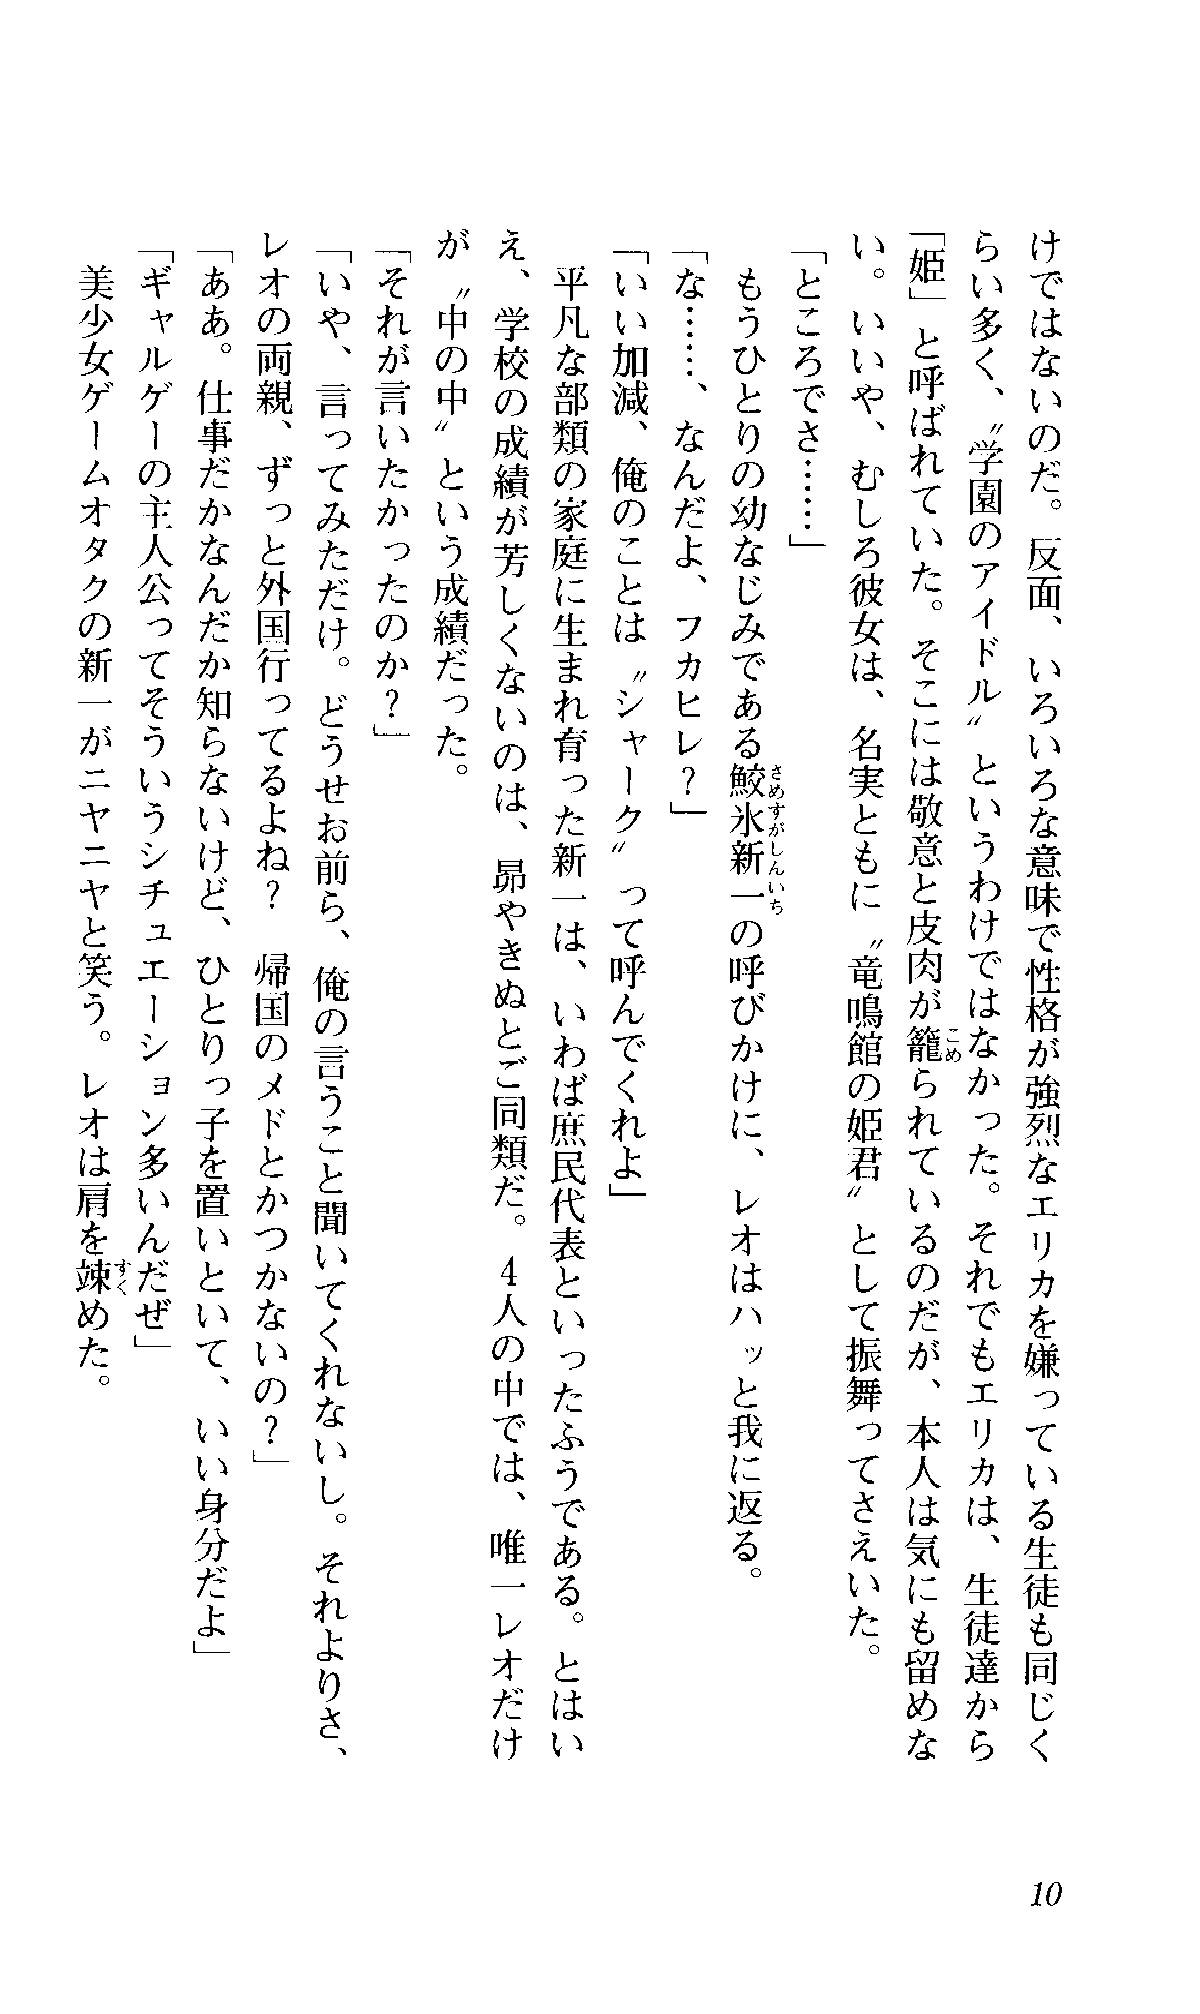 けではないのだ。反面、いろいろな意味で性格が強烈なエリカを嫌っている生徒も同じく
らい多く、〝学園のアイドル〟というわけではなかった。それでもエリカは、生徒達から
「姫」と呼ばれていた。そこには敬意と皮肉が籠られているのだが、本人は気にも留めな
い。いいや、むしろ彼女は、名実ともに〝竜鳴館の姫君〟として振舞ってさえいた。
「ところでさ……」
もうひとりの幼なじみである鮫氷新一の呼びかけに、レオはハッと我に返る。
「な……、なんだよ、フカヒレ？」
「いい加減、俺のことは〝シャーク〟って呼んでくれよ」
平凡な部類の家庭に生まれ育った新一は、いわば庶民代表といったふうである。とはい
え、学校の成績が芳しくないのは、昴やきぬとご同類だ。4人の中では、唯一レオだけ
が〝中の中〟という成績だった。
「それが言いたかったのか？」
「いや、言ってみただけ。どうせお前ら、俺の言うこと聞いてくれないし。それよりさ、
レオの両親、ずっと外国行ってるよね？　帰国のメドとかつかないの？」
「ああ。仕事だかなんだか知らないけど、ひとりっ子を置いといて、いい身分だよ」
「ギャルゲーの主人公ってそういうシチュエーション多いんだぜ」
美少女ゲームオタクの新一がニヤニヤと笑う。レオは肩を竦めた。
10